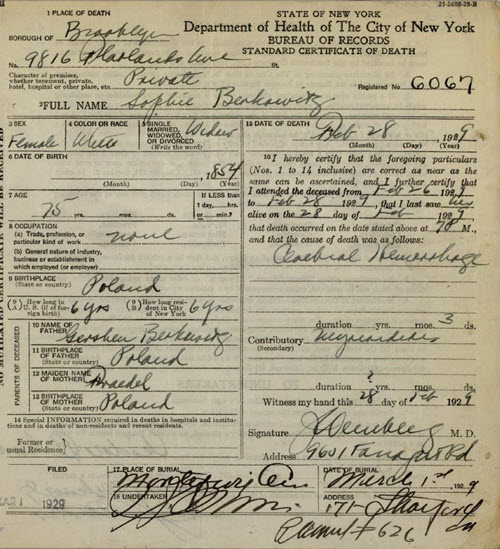 25-2608-28-B
1 PLACE OF DEATH
STATE OF NEW YORK
Department of Health of The City of New York
BUREAU OF RECORDS
STANDARD CERTIFICATE OF DEATH
BOROUGH OF Brooklyn
No. 9816 Flatlands Ave St.
Character of premises,
whether tenement, private,
hotel, hospital or other place, etc. Private
Registered No 6067
2 FULL NAME Sophie Berkowitz
3 SEX Female
4 COLOR OR RACE White
5 SINGLE,
MARRIED,
WIDOWED,
OR DIVORCED
(Write the word) Widow
6 DATE OF BIRTH
, 1854
(Month) (Day) (Year)
7 AGE
75 yrs. mos. ds.
If LESS than
1 day, hrs.
or min.?
8 OCCUPATION
(a) Trade, profession, or
particular kind of work none
(b) General nature of industry,
business or establishment in
which employed (or employer)
9 BIRTHPLACE
(State or country) Poland
(9A) How long in
U. S. (if of foreign birth) 6 yrs
(9B) How long resident in City
of New York 6 yrs
PARENTS OF DECEASED
10 NAME OF
FATHER Gershen Berkowitz
11 BIRTHPLACE
OF FATHER
(State or country) Poland
12 MAIDEN NAME
OF MOTHER
13 BIRTHPLACE
OF MOTHER
(State or country) Poland
14 Special INFORMATION required in deaths in hospitals and institutions
and in deaths of non-residents and recent residents.
Former or
usual Residence
15 DATE OF DEATH Feb 28 1929
(Month) (Day) (Year)
16 I hereby certify that the foregoing particulars
(Nos. 1 to 14 inclusive) are correct as near as the
same can be ascertained, and I further certify that
I attended the deceased from Feb 26 1929
to Feb 28 1929, that I last saw her
alive on the 28 day of Feb 1929,
that death occurred on the date stated above at M.,
and that the cause of death was as follows:
Cerebral Hemorrhage
duration yrs. mos. 3 ds.
Contributory Myocarditis
(Secondary)
duration ? yrs. mos. ds.
Witness my hand this 28 day of Feb 1929
Signature M. D.
Address 9601 Farragut Rd
FILED
1929
17 PLACE OF BURIAL
Montefiore Cem
DATE OF BURIAL
March 1st 1929
18 UNDERTAKER
ADDRESS
171
Permit # 626